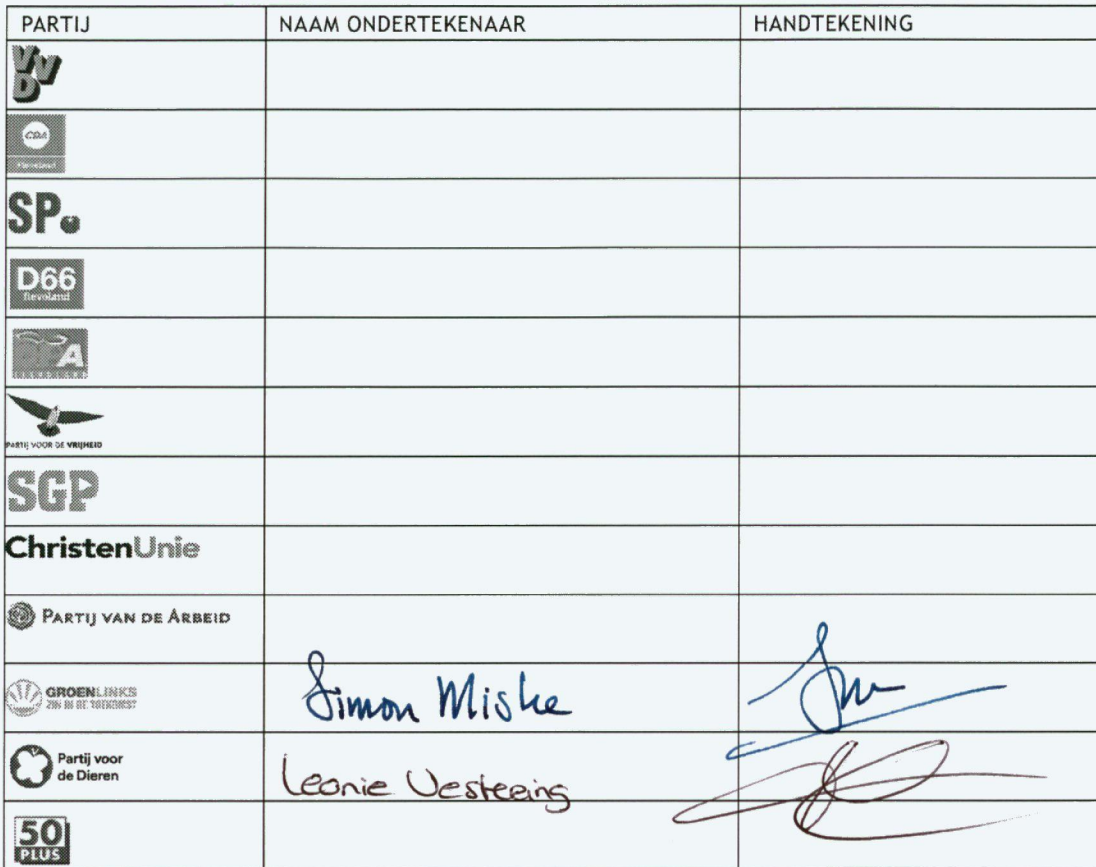 PARTIJ NAAM ONDERTEKENAAR HANDTEKENING
VVD
CDA
Flevoland
SP.
D66
flevoland
PARTIJ VOOR DE VRIJHEID
SGP
ChristenUnie
PARTIJ VAN DE ARBEID
GROENLINKS Simon Miske
ZIN IN DE TOEKOMST
Partij voor
de Dieren Leonie Vesteeing
50
PLUS